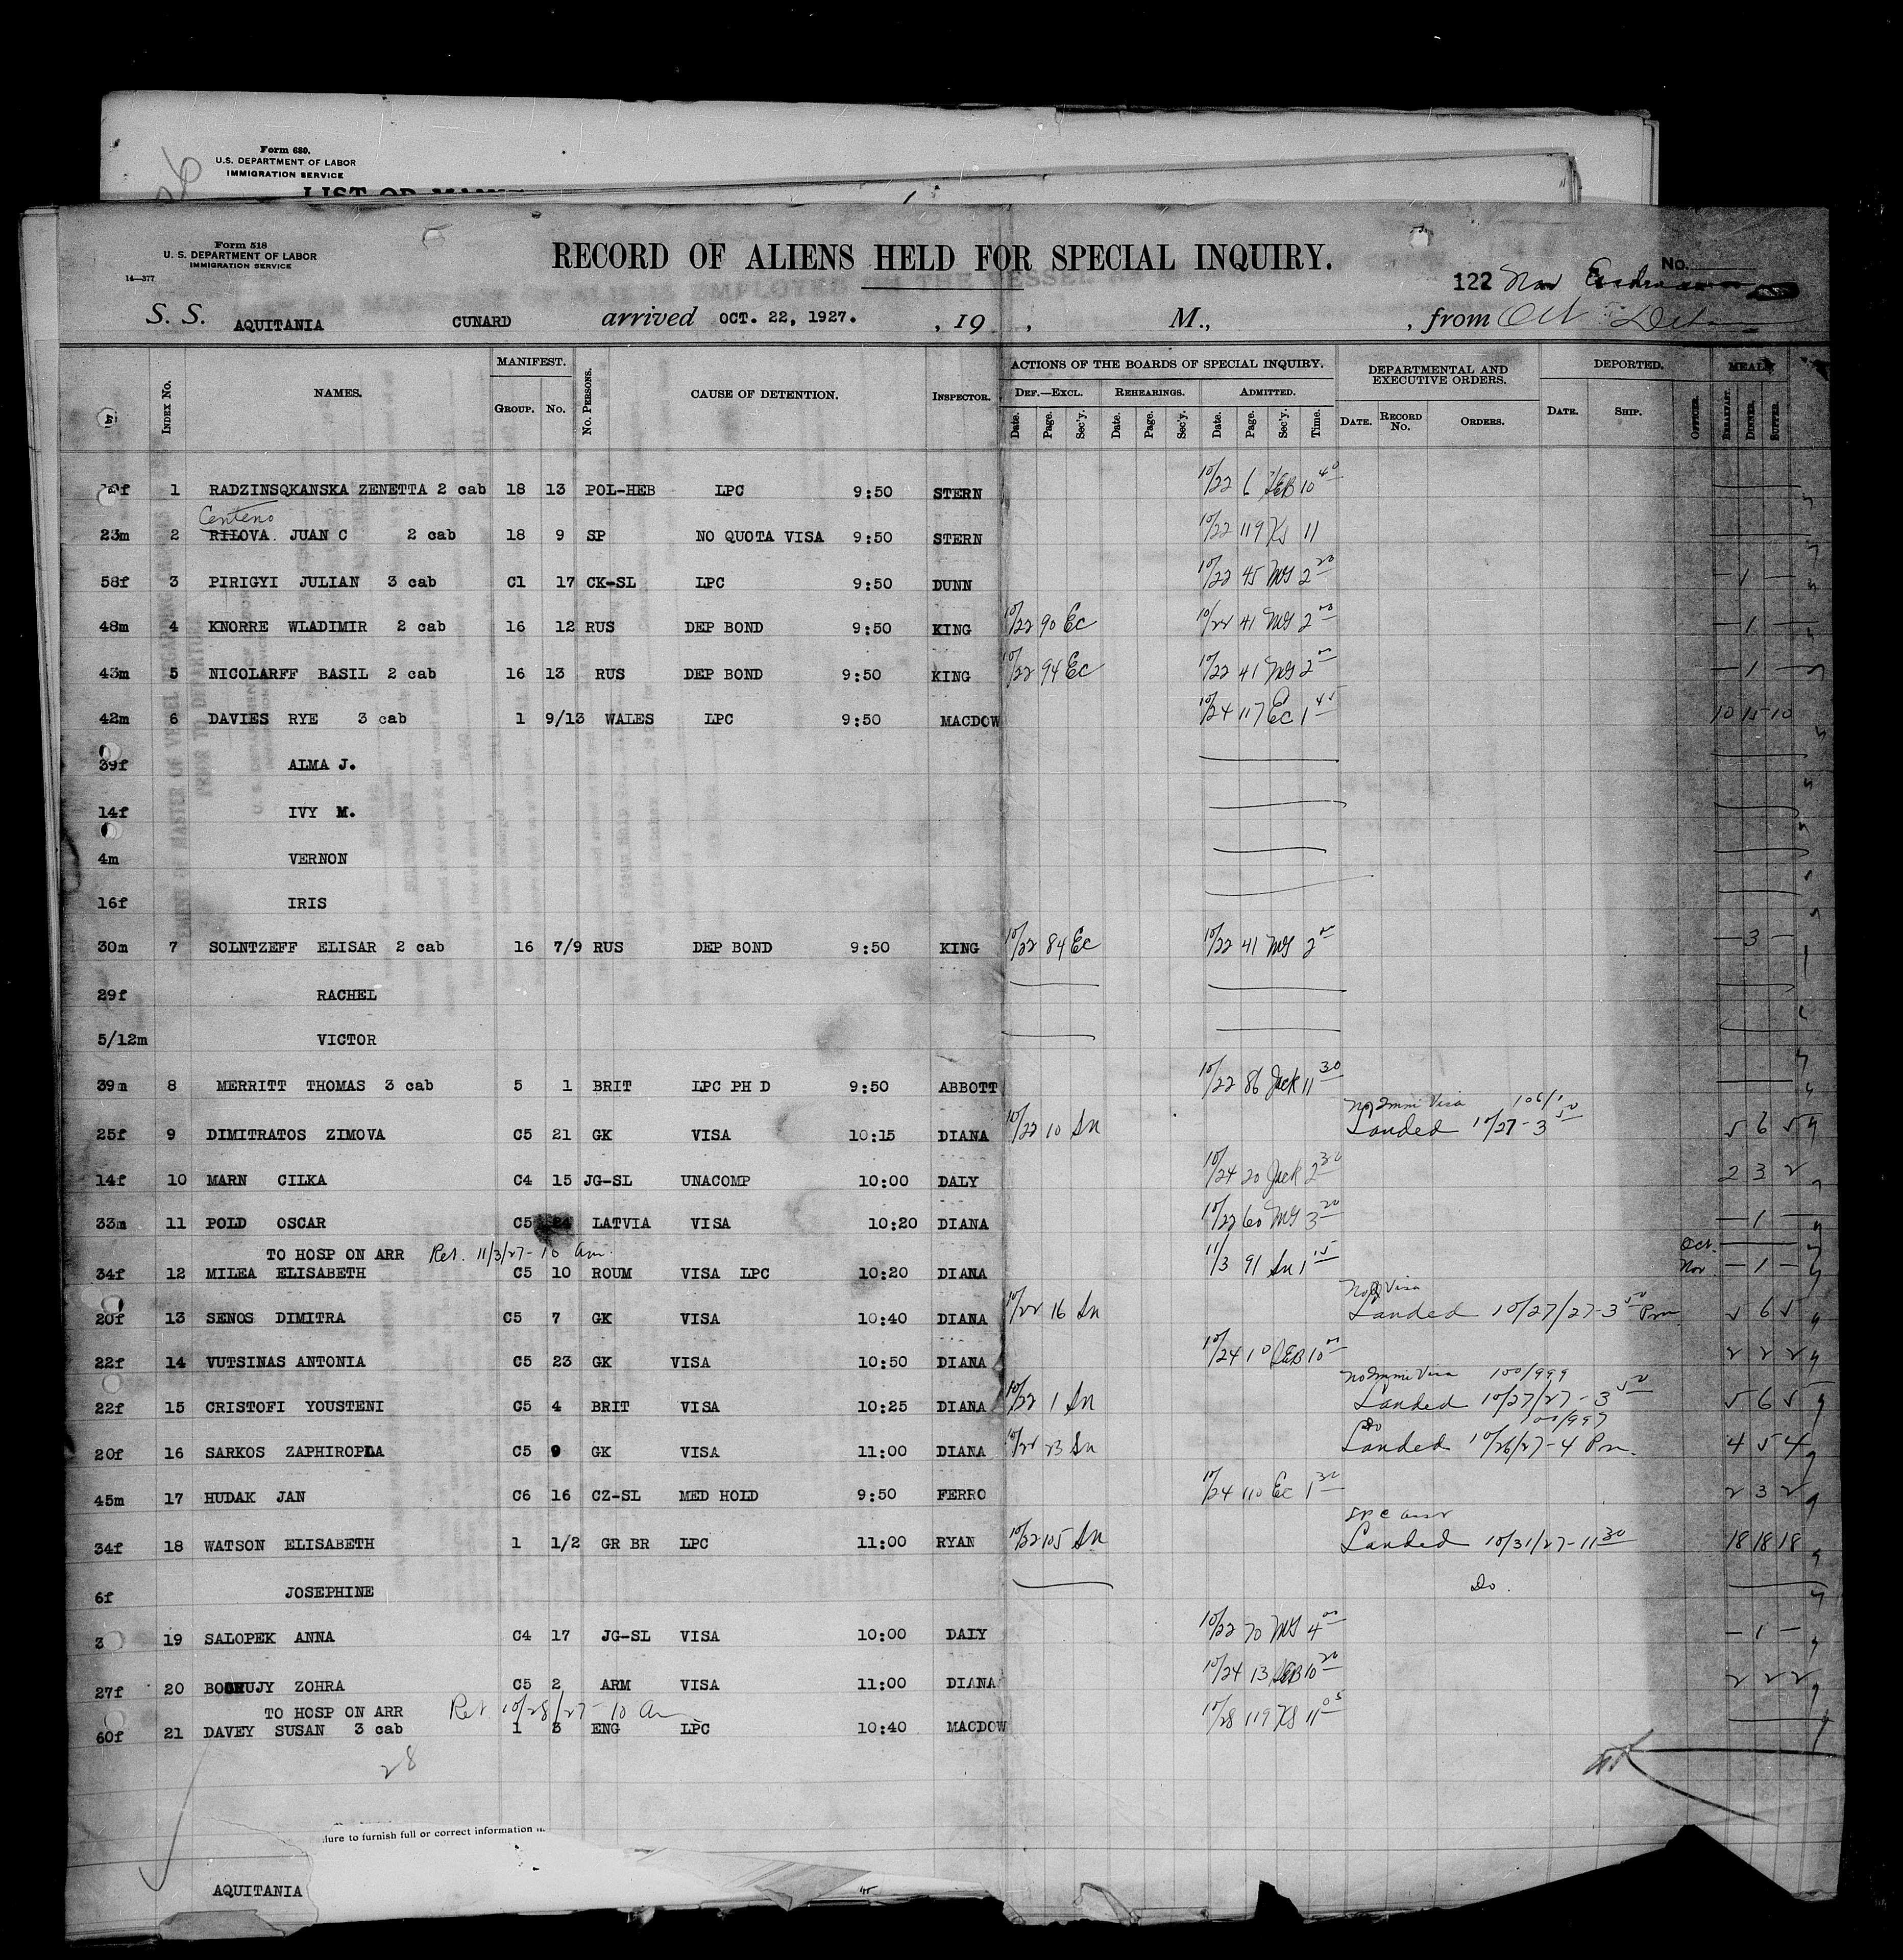 Form 680.
U.S. DEPARTMENT OF LABOR
IMMIGRATION SERVICE
Form 518
U. S. DEPARTMENT OF LABOR
IMMIGRATION SERVICE
14—377
RECORD OF ALIENS HELD FOR SPECIAL INQUIRY.
No.
122
S. S. AQUITANIA CUNARD arrived OCT. 22, 1927. , 19 , M., , from
INDEX No. NAMES. MANIFEST. GROUP. No. No. PERSONS. CAUSE OF DETENTION. INSPECTOR. ACTIONS OF THE BOARDS OF SPECIAL INQUIRY. DEF.—EXCL. Date. Page. Sec'y. REHEARINGS. Date. Page. Sec'y. ADMITTED. Date. Page. Sec'y. Time. DEPARTMENTAL AND EXECUTIVE ORDERS. DATE. RECORD No. ORDERS. DEPORTED. DATE. SHIP. OFFICER. MEALS. BREAKFAST. DINNER. SUPPER.
1 RADZINSQKANSKA ZENETTA 2 cab 18 13 POL-HEB LPC 9:50 STERN 10/22 6 LEB 10 40
Centeno
23m 2 RILOVA JUAN C 2 cab 18 9 SP NO QUOTA VISA 9:50 STERN 10/22 119 KS 11
58f 3 PIRIGYI JULIAN 3 cab C1 17 CK-SL LPC 9:50 DUNN 10/22 45 MG 2 20 — 1 —
48m 4 KNORRE WLADIMIR 2 cab 16 12 RUS DEP BOND 9:50 KING 10/22 90 Ec 10/22 41 MG 2 00 — 1 —
43m 5 NICOLARFF BASIL 2 cab 16 13 RUS DEP BOND 9:50 KING 10/22 94 Ec 10/22 41 MG 2 00 — 1 —
42m 6 DAVIES RYE 3 cab 1 9/13 WALES LPC 9:50 MACDOW 10/24 117 Ec 1 45 10 15 10
39f ALMA J.
14f IVY M.
4m VERNON
16f IRIS
30m 7 SOLNTZEFF ELISAR 2 cab 16 7/9 RUS DEP BOND 9:50 KING 10/22 84 Ec 10/22 41 MG 2 00 — 3 —
29f RACHEL
5/12m VICTOR
39m 8 MERRITT THOMAS 3 cab 5 1 BRIT LPC PH D 9:50 ABBOTT 10/22 86 Jack 11 30
No Immi Visa
25f 9 DIMITRATOS ZIMOVA C5 21 GK VISA 10:15 DIANA 10/22 10 Sn Landed 10/27 - 3 50 5 6 5
14f 10 MARN CILKA C4 15 JG-SL UNACOMP 10:00 DALY 10/24 20 Jack 2 30 2 3 2
33m 11 POLD OSCAR C5 24 LATVIA VISA 10:20 DIANA 10/22 60 MG 3 20 — 1 —
TO HOSP ON ARR Ret. 11/3/27 - 10 am. Oct.
34f 12 MILEA ELISABETH C5 10 ROUM VISA LPC 10:20 DIANA 11/3 91 Sn 1 15 Nov — 1 —
20f 13 SENOS DIMITRA C5 7 GK VISA 10:40 DIANA 10/22 16 Sn Landed 10/27/27 - 3 50 Pm 5 6 5
22f 14 VUTSINAS ANTONIA C5 23 GK VISA 10:50 DIANA 10/24 10 LEB 10 00 2 2 2
No Immi Visa 100/999
22f 15 CRISTOFI YOUSTENI C5 4 BRIT VISA 10:25 DIANA 10/22 1 Sn Landed 10/27/27 - 3 50 5 6 5
Do 100/997
20f 16 SARKOS ZAPHIROPLA C5 9 GK VISA 11:00 DIANA 10/22 23 Sn Landed 10/26/27 - 4 Pm. 4 5 4
45m 17 HUDAK JAN C6 16 CZ-SL MED HOLD 9:50 FERRO 10/24 110 Ec 1 30 2 3 2
34f 18 WATSON ELISABETH 1 1/2 GR BR LPC 11:00 RYAN 10/22 105 Sn Landed 10/31/27 - 11 30 18 18 18
6f JOSEPHINE Do.
3 19 SALOPEK ANNA C4 17 JG-SL VISA 10:00 DALY 10/22 70 MG 4 00 — 1 —
27f 20 ZOHRA C5 2 ARM VISA 11:00 DIANA 10/24 13 LEB 10 20 2 2 2
TO HOSP ON ARR Ret. 10/28/27 - 10 am
60f 21 DAVEY SUSAN 3 cab 1 3 ENG LPC 10:40 MACDOW 10/28 119 KS 11 05
28
lure to furnish full or correct information
AQUITANIA